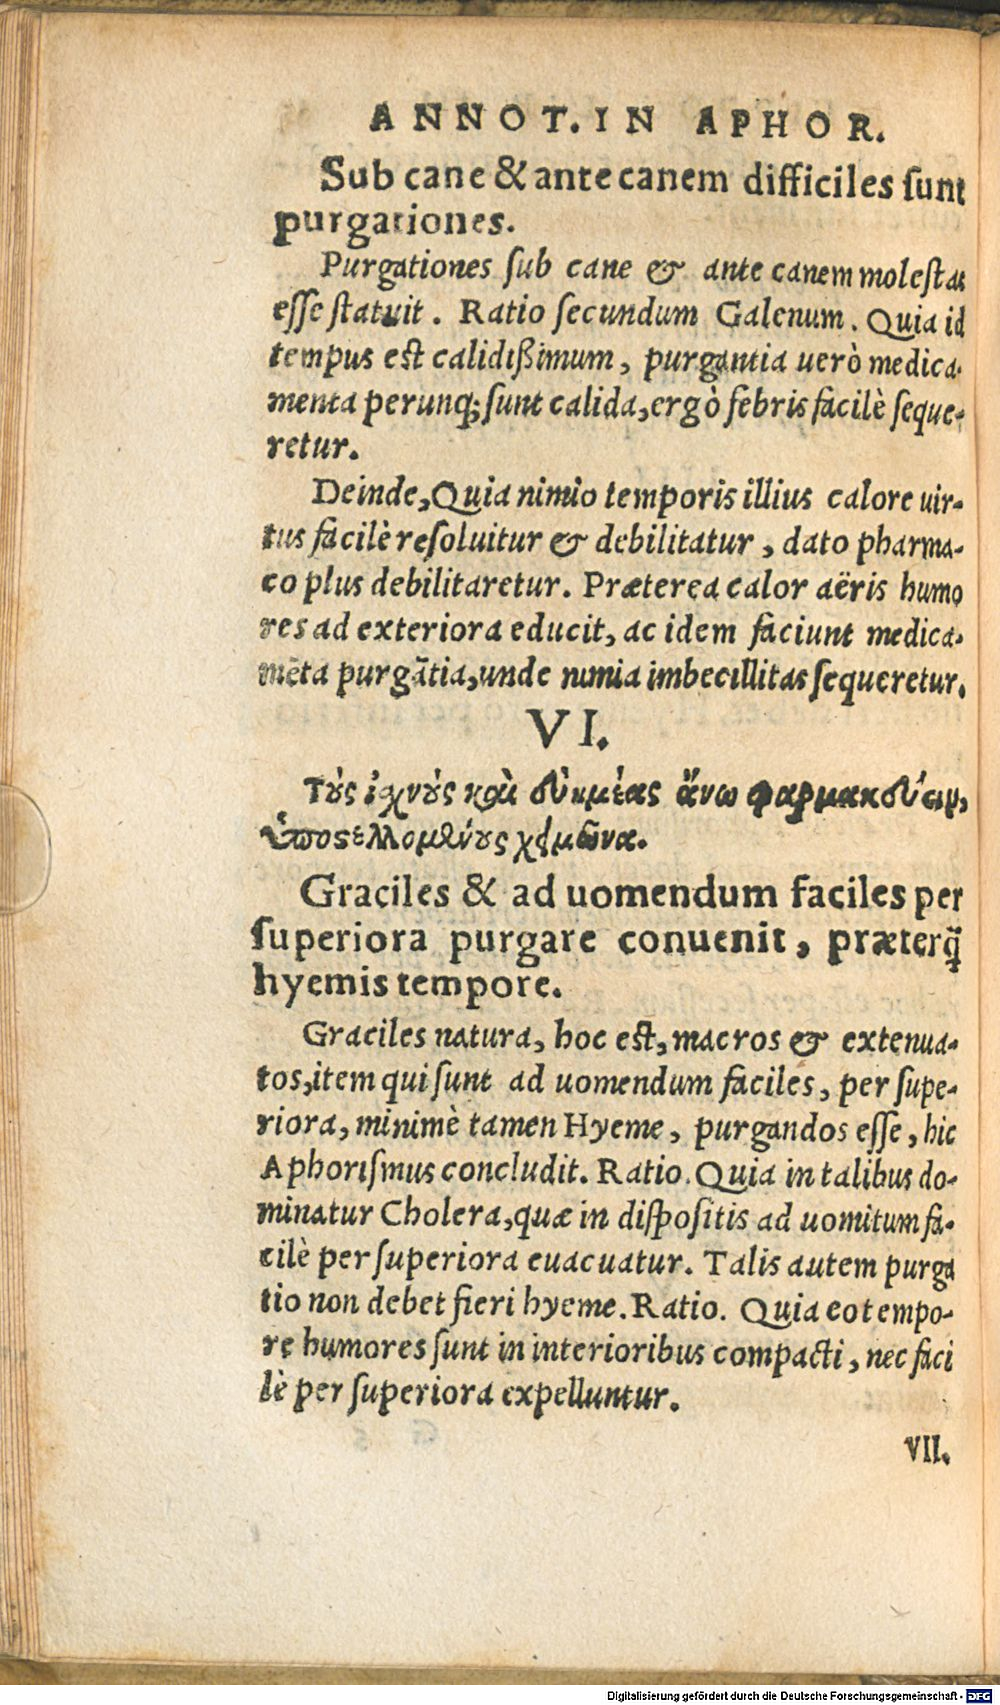 ANNOT. IN APHOR.
Sub cane & ante canem difficiles ſunt
purgationes.
Purgationes ſub cane & ante canem moleſtas
eſſe ſtatuit. Ratio ſecundum Galenum. Quia id
tempus eſt calidißimum, purgantia uerò medica-
menta perunq; ſunt calida, ergò febris facilè ſeque-
retur.
Deinde, Quia nimio temporis illius calore uir-
tus facilè reſoluitur & debilitatur, dato pharma-
co plus debilitaretur. Præterea calor aëris humo
res ad exteriora educit, ac idem faciunt medica-
mēta purgātia, unde nimia imbecillitas ſequeretur.
VI.
Τοὺς ἰχνοὺς καὶ εὐημέας ἄνω φαρμακεύειν,
ὑποστελλομένους χειμῶνα.
Graciles & ad uomendum faciles per
ſuperiora purgare conuenit, præterq̃
hyemis tempore.
Graciles natura, hoc eſt, macros & extenua-
tos, item qui ſunt ad uomendum faciles, per ſupe-
riora, minimè tamen Hyeme, purgandos eſſe, hic
Aphoriſmus concludit. Ratio. Quia in talibus do-
minatur Cholera, quæ in diſpoſitis ad uomitum fa-
cilè per ſuperiora euacuatur. Talis autem purga
tio non debet fieri hyeme. Ratio. Quia eo tempo-
re humores ſunt in interioribus compacti, nec faci
lè per ſuperiora expelluntur.
VII.
Digitalisierung gefördert durch die Deutsche Forschungsgemeinschaft - DFG